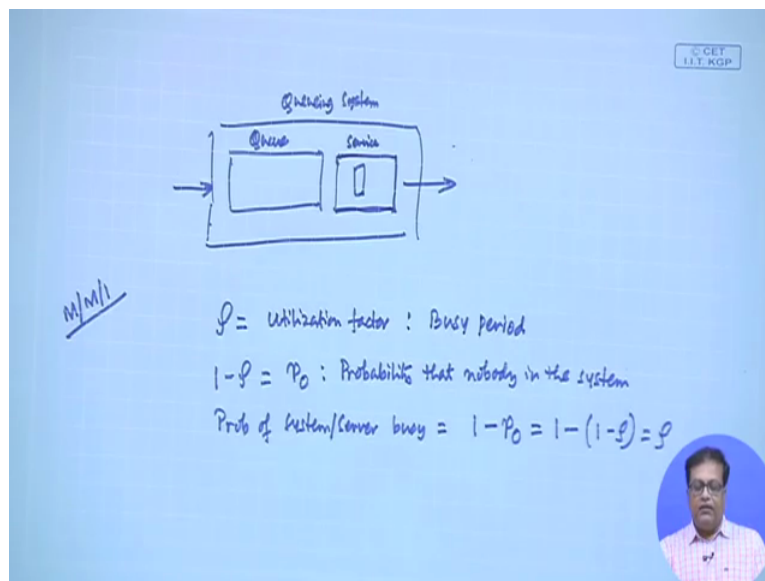 © CET
I.I.T. KGP
Queueing System
Queue Service
M/M/1
ρ = Utilization factor : Busy period
1-ρ = P₀ : Probability that nobody in the system
Prob of System/Server busy = 1-P₀ = 1-(1-ρ) = ρ